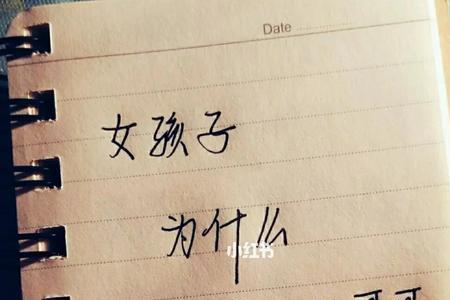 Date
女孩子
为什么
小红书